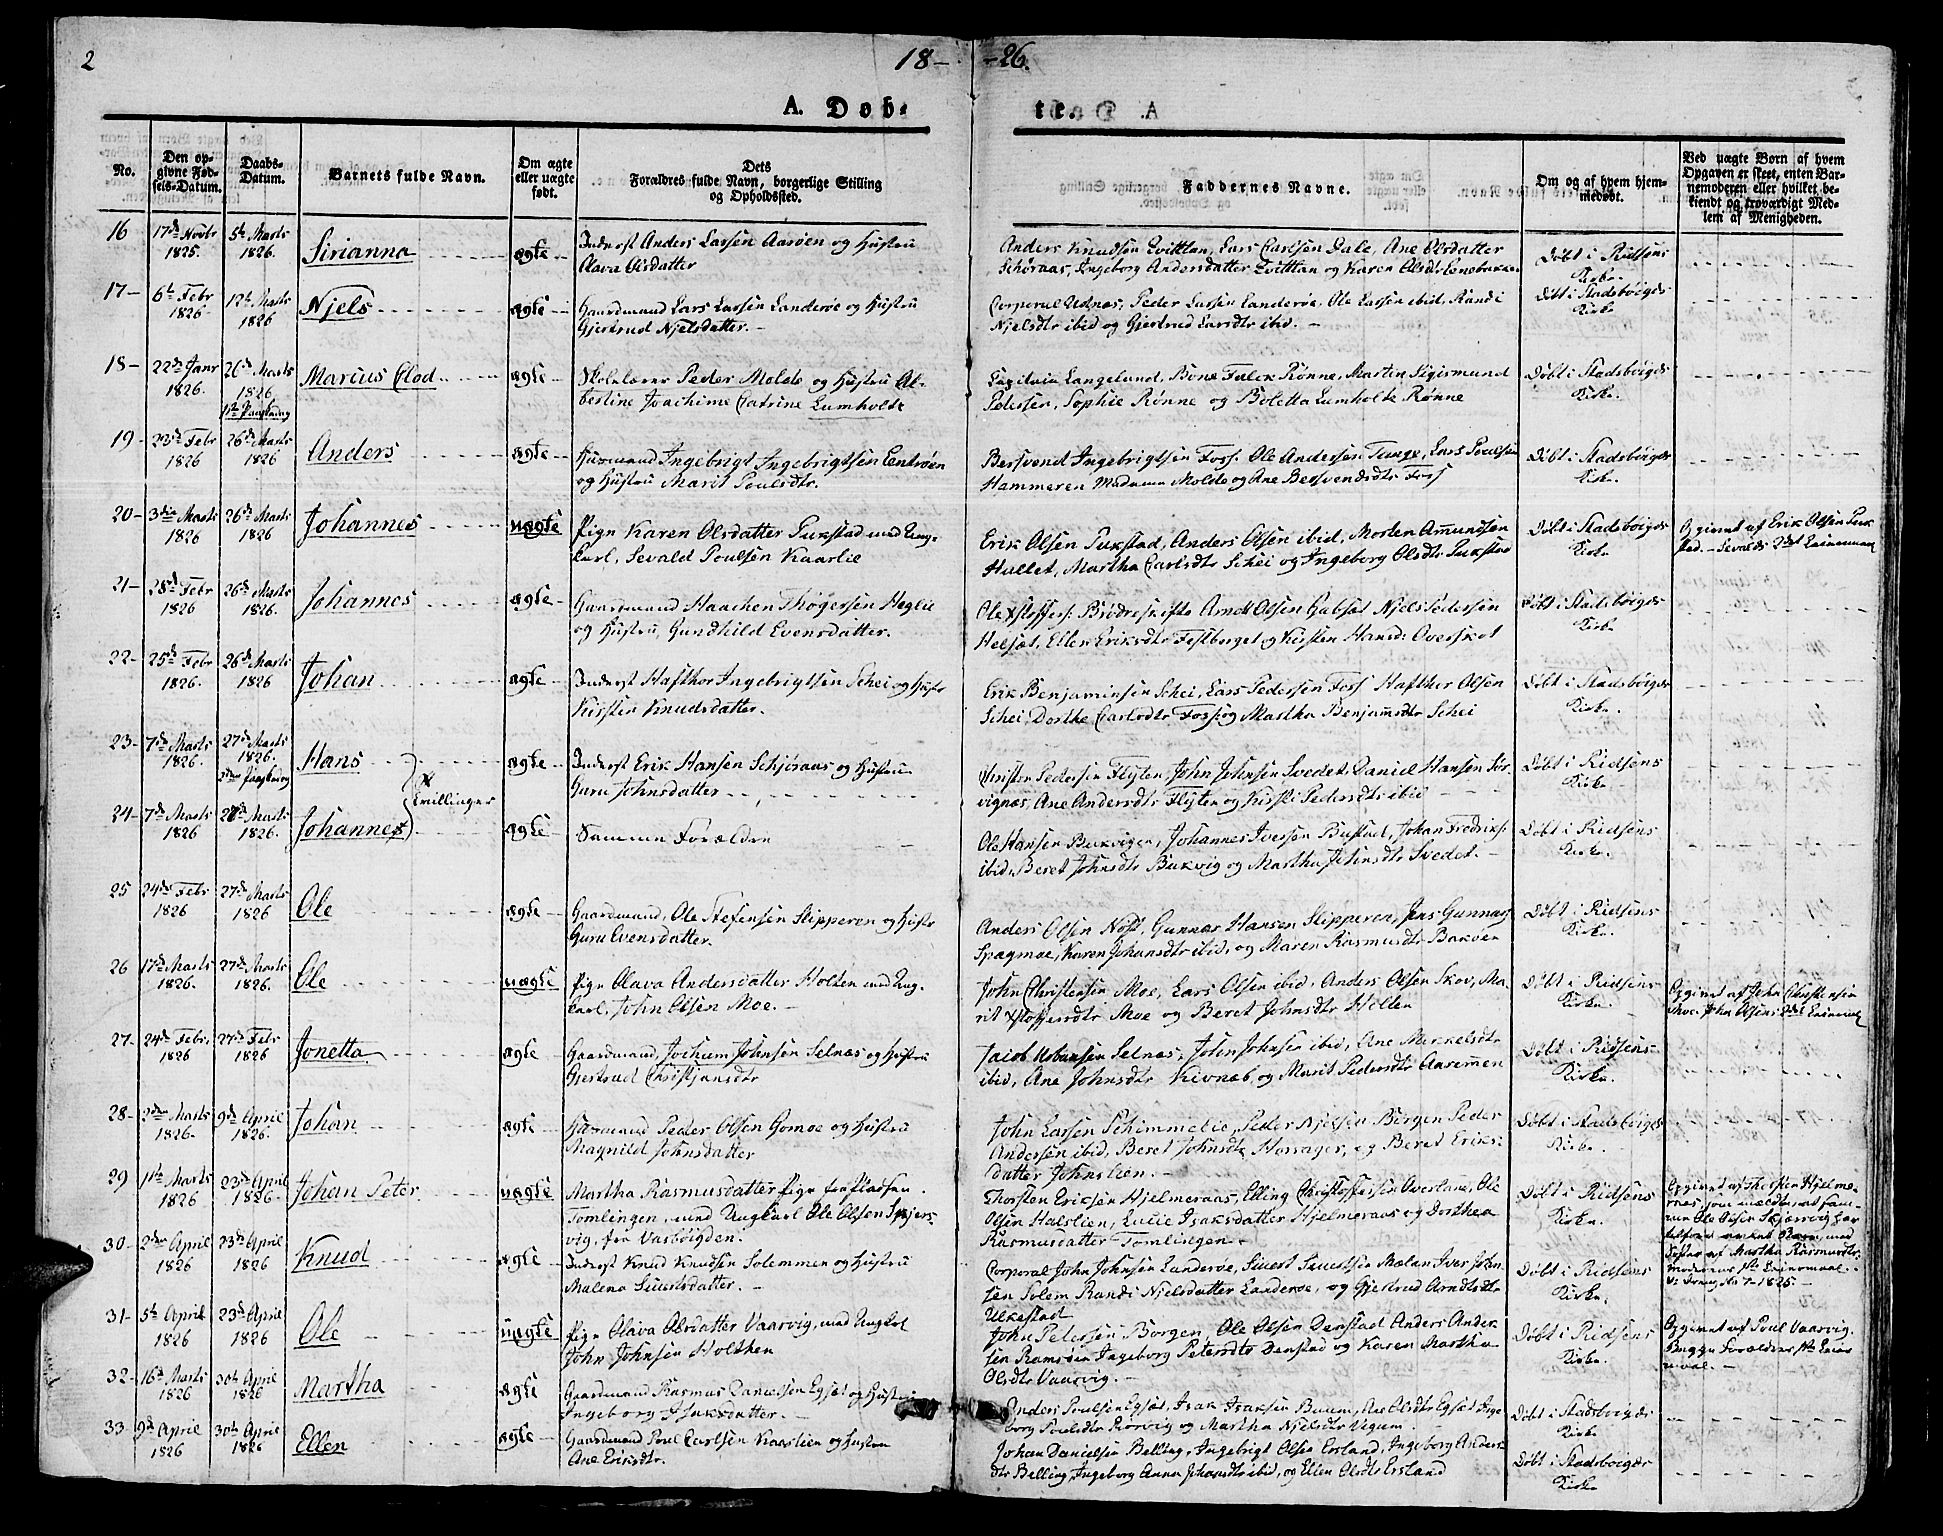 2
18- -26.
A. Døb- te.
No.
Den opgivne Fødsels-Datum.
Daabs-Datum.
Barnets fulde Navn.
Om ægte eller uægte født.
Dets Forældres fulde Navn, borgerlige Stilling og Opholdssted.
Faddernes Navne.
Om og af hvem hjemmedøbt.
Ved uægte Børn af hvem Opgaven er skeet, enten Barnemoderen eller hvilket bekiendt og troværdigt Medlem af Menigheden.
16 17de Novbr 1825. 5te Marts 1826. Sirianna ægte Inderst Anders Larsen Aarøen og Hustru
Olava Olsdatter
Anders Knudsen Qvittlan, Lars Carlsen Dale, Ane Olsdatter
Schøraas, Ingeborg Andersdatter Qvittlan og Karen Olsdtr
Døbt i Ridsens Kirke.
17- 6te Febr 1826. 12te Marts 1826 Njels ægte Gaardmand Lars Larsen Landerøe og Hustru
Gjertrud Njelsdatter.-
Corporal Udnæs, Peder Larsen Landerøe, Ole Larsen ibid, Randi
Njelsdtr ibid og Gjertrud Larsdtr ibid.-
Døbt i Stadsbøigds Kirke
18- 22de Janr 1826. 26de Marts 1826 Marcus Clod ægte Skolelærer Peder Molde og Hustru Al-
bertine Joachime Catrine Lumholtz
Capitain Langelund, Bone Falck Rønne, Marten Sigismund
Petersen, Sophie Rønne og Boletta Lumholtz Rønne
Døbt i Stadsbøigds Kirke.
19- 23de Febr 1826 26de Marts 1826 Anders ægte Huusmand Ingebrigt Ingebrigtsen
og Hustru Marit Poulsdtr.
Bersvend Ingebrigtsen Foss. Ole Andersen Tunge, Lars Poulsen
Hammeren Madame Molde og Ane Bersvendsdtr Foss
Døbt i Stadsbøigds Kirke.
20- 3die Marts 1826 26de Marts 1826 Johannes uægte Pige Karen Olsdatter Pukstad med Ung-
karl, Sevald Poulsen Kaarlie
Erik Olsen Pukstad, Anders Olsen ibid, Morten Amundsen
Hallet, Martha Carlsdtr Schei og Ingeborg Olsdtr Pukstad
Døbt i Stadsbøigds Kirke.
Opgivet af Erik Olsen Puk
stad.- Sevalds 2det Leiermaal
21- 28de Febr 1826 26de Marts 1826. Johannes ægte Gaardmand Haachen Thøgersen Heglie
og Hustru, Gundhild Evensdatter.
Ole Xstoffers: Brødreskifte Arndt Olsen Gabsæt Njels Pedersen
Helsæt, Ellen Eriksdtr Festberget og Kirsten Hansd: Overskot
Døbt i Stadsbøigds Kirke.
22- 25de Febr 1826. 26de Marts 1826 Johan ægte Inderst Hafthor Ingebrigtsen Schei og Hustr
Kirsten Knudsdatter.
Erik Benjaminsen Schei, Lars Pedersen Foss Hafthor Olsen
Schei, Dorthe Carlsdtr Foss og Martha Benjamsdtr Schei
Døbt i Stadsbøigds Kirke.
23- 7de Marts 1826. 27de Marts 1826. Hans ægte Inderst Erik Hansen Schjøraas og Hustru
Guru Johnsdatter
Tvillinger
Christen Pedersen Flyten, John Johnsen Svedet, Daniel Hansen Sør
vignæs, Ane Andersdtr Flyten og Kirsti Pedersdtr ibid
Døbt i Ridsens Kirke.
24- 7de Marts 1826 27de Marts 1826. Johannes ægte Samme Forældre
Ole Hansen Bukvigen, Johannes Iversen Bustad, Johan Fredriks:
ibid, Beret Johnsdtr Bukvig og Martha Johnsdtr Svedet.-
Døbt i Ridsens Kirke.
25 24de Febr 1826 27de Marts 1826 Ole ægte Gaardmand, Ole Stefensen Slipperen og Hustr
Guru Evensdatter.
Anders Olsen Nøst, Gunnar Hansen Slipperen, Jens Gunnars
Spagmoe, Karen Johansdtr ibid, og Maren Rasmusdtr Bakøen
Døbt i Ridsens Kirke.
26 17de Marts 1826. 27de Marts 1826. Ole uægte Pige Olava Andersdatter Holten med Ung-
karl, John Olsen Moe.-
John Christensen Moe, Lars Olsen ibid, Anders Olsen Skov, Ma-
rit Xstoffersdtr Moe og Beret Johnsdtr Hellen
Døbt i Ridsens Kirke.
Opgivet af John Christensen
Moe. John Olsens 2det Leiermaal
27. 24de Febr. 1826 27de Febr 1826 Jonetta ægte Gaardmand, Jochum Johnsen Selnæs og Hustru
Gjertrud Christjansdtr
Jacob Selnæs, John Johnsen ibid, Ane Mikkelsdtr
ibid, Ane Johnsdtr Kivnæb, og Marit Pedersdtr Aaremen
Døbt i Ridsens Kirke.
28- 2den Marts 1826- 9de April 1826. Johan ægte Huusmand Peder Olsen Gomoe og Hustru
Magnild Johnsdatter
John Larsen Schimmelie, Peder Njelsen Borgen Peder
Andersen ibid, Beret Johnsdtr Harrager, og Beret Eriks:
datter Johnslien.-
Døbt i Stadsbøigds Kirke.
29 1ste Marts 1826 23de April 1826- Johan Peter uægte Martha Rasmusdatter Pige fra Pladsen
Tomlingen, med Ungkarl Ole Olsen
vig, fra Værbøigden.
Thorsten Eriksen Hjelmeraas, Elling Christoffersen Overlane, Ole
Olsen Halslien, Lucie Isaksdatter Hjelmeraas og Dorthea
Rasmusdatter Tomlingen-
Døbt i Ridsens Kirke.
Opgivet af Thorsten Hjelme-
raas, som
30- 2den April 1826 23de April 1826 Knud ægte Inderst Knud Knudsen Solemmen og Hustru
Malena Siursdatter.-
Corporal John Johnsen Landerøe, Siuert Siuertsen Malan Iver John
sen Solem Randi Njelsdatter Landerøe, og Gjertrud Arndtsdtr
Ulkestad
Døbt i Ridsens Kirke.
31- 5te April 1826 23de April 1826 Ole uægte Pige Olava Olsdatter Vaarvig, med Ungkarl
John Johnsen Holthen
John Petersen Borgen, Ole Olsen Denstad Anders Ander
sen Ramsøen Ingeborg Petersdtr Denstad og Karen Martha
Olsdtr Vaarvig.-
Døbt i Ridsens Kirke.
Opgivet af Poul Vaarvig.
Begge Forældres 1ste Leier
maal.-
32- 16de Marts 1826 30te April 1826 Martha ægte Gaardmand Rasmus Danielsen Egsæt og Hustru
Ingeborg Isaksdatter.-
Anders Poulsen Egsæt, Isak Isaksen Buum, Ane Olsdtr Egsæt Inge
borg Poulsdtr Rørvig og Martha Njelsdtr Vegum
Døbt i Stadsbøigds Kirke
33- 9de April 1826 30te April 1826 Ellen ægte Gaardmand Poul Carlsen Kaarlien og Hustru
Ane Eriksdtr.
Johan Danielsen Belling, Ingebrigt Olsen Ersland, Ingeborg Anders
dtr Belling, Ingeborg Anna Johansdtr ibid, og Ellen Olsdtr Ersland
Døbt i Stadsbøigds Kirke.